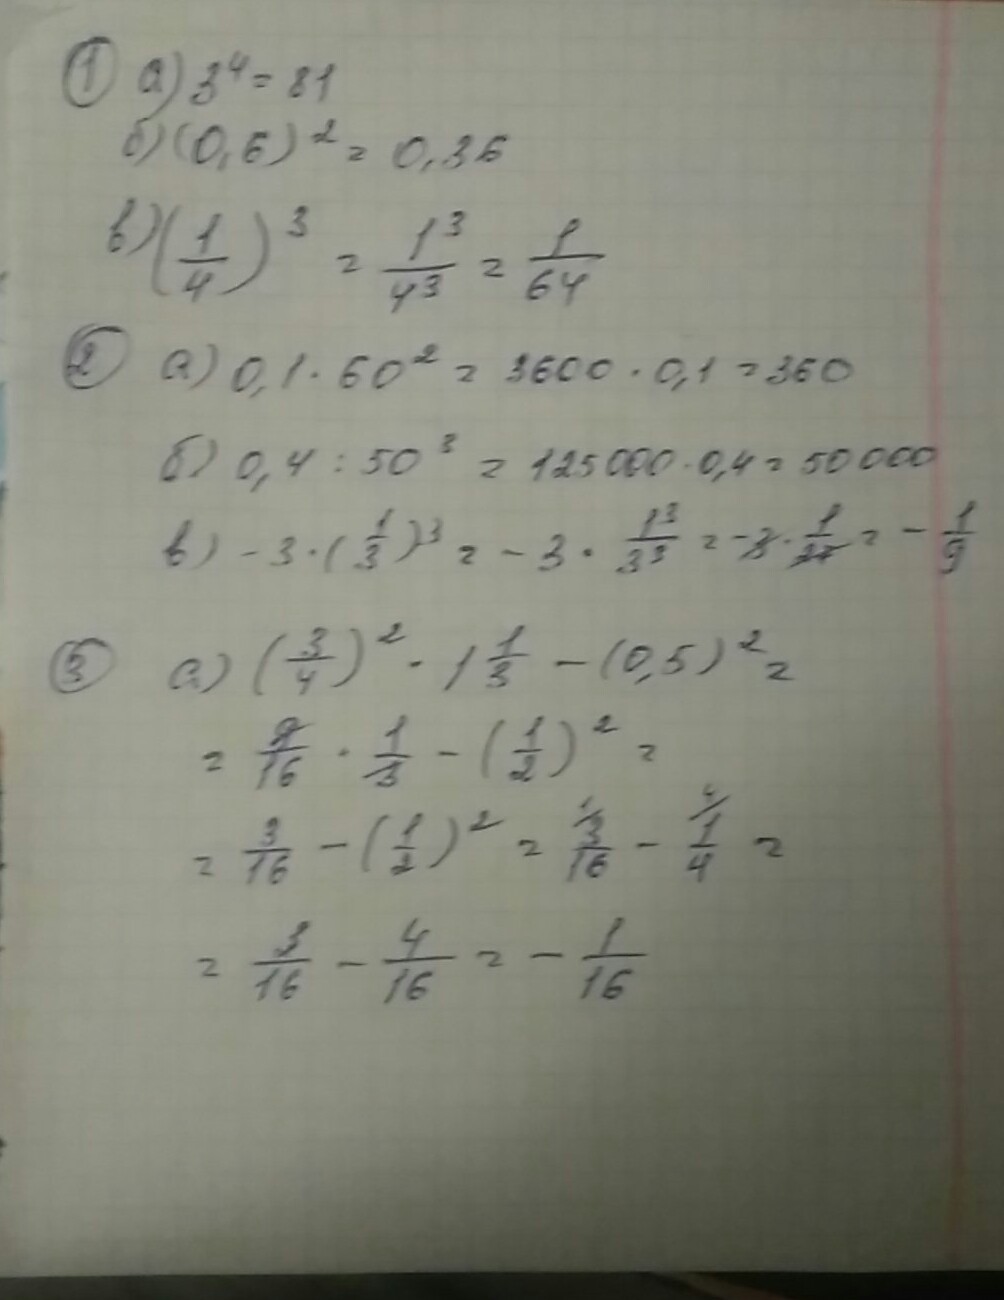 ① а) 3⁴ = 81
б) (0,6)² = 0,36
в) (1/4)³ = 1³/4³ = 1/64
② а) 0,1 · 60² = 3600 · 0,1 = 360
б) 0,4 : 50³ = 125000 · 0,4 = 50000
в) -3 · (1/3)³ = -3 · 1³/3³ = -3 · 1/27 = -1/9
③ а) (3/4)² · 1 1/3 - (0,5)² =
= 9/16 · 1/3 - (1/2)² =
= 3/16 - (1/2)² = 3/16 - 1/4 =
= 3/16 - 4/16 = -1/16